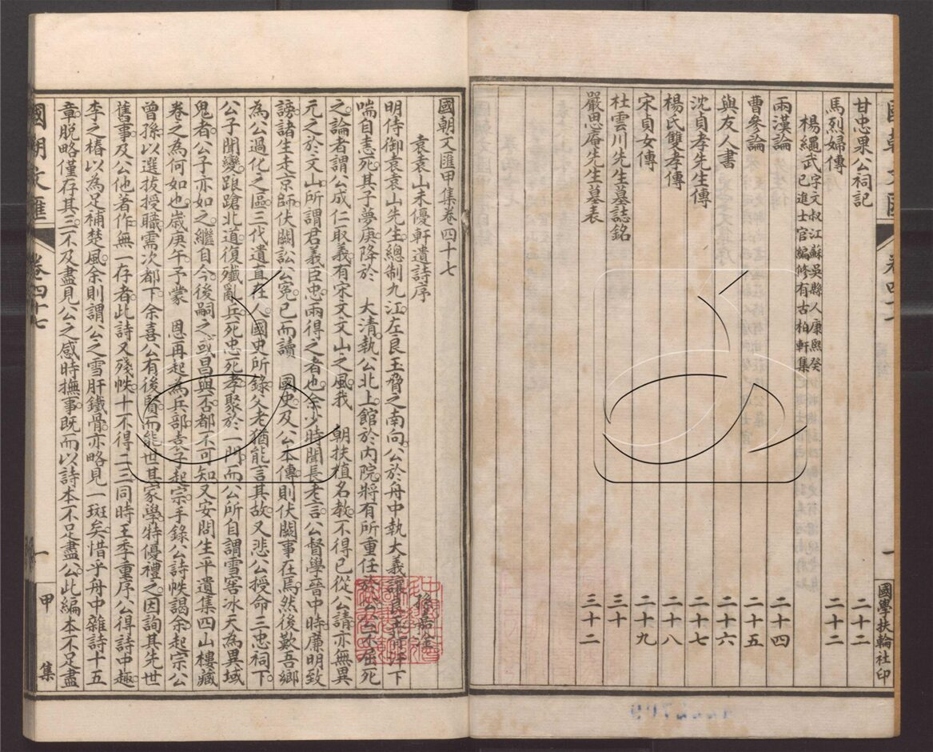 甘忠果公祠記 二十二
馬烈婦傳 二十二
楊繩武 字文叔江蘇吳縣人康熙癸
巳進士官編修有古柏軒集
兩漢論 二十四
曹參論 二十五
與友人書 二十六
沈貞孝先生傳 二十七
楊氏雙孝傳 二十八
宋貞女傳 二十九
杜雲川先生墓誌銘 三十
嚴思庵先生墓表 三十二
國學扶輪社印
國朝文匯甲集卷四十七
袁袁山未優軒遺詩序
明侍御袁袁山先生總制九江左良玉脅之南向公於舟中執大義讓良玉
喘自恚死其子夢庚降於 大清執公北上館於內院將有所重任於公公不屈死
之論者謂公成仁取義有宋文文山之風我 朝扶植名教不得已從公請亦無異
元之於文山所謂君義臣忠兩得之者也余少時聞長老言公督學晉中時廉明致
謗諸生走京師伏闕訟公冤已而讀 國史及公本傳則伏闕事在焉然後歎吾鄉
為公過化之區三代遺直在人國史所錄父老猶能言其故又悲公授命三忠祠下
公子聞變踉蹌北道復殲亂兵死忠死孝聚於一門而公所自謂雪窖冰天為異域
鬼者公子亦如之繼自今後嗣之或昌與否都不可知又安問生平遺集四山樓藏
卷之為何如也歲庚午予蒙 恩再起為兵部袁子起宗手錄公詩帙謁余起宗公
曾孫以選拔授職需次都下余喜公有後賢而能世其家學特優禮之因詢其先世
舊事及公他著作無一存者此詩又殘帙十不得二三同時王季重序公得詩中趣
李之椿以為足補楚風余則謂公之雪肝鐵骨亦略見一斑矣惜乎舟中雜詩十五
章脫略僅存其三不及盡見公之感時撫事既而以詩本不足盡公此編本不足盡
國朝文匯 卷四十七 一 甲集